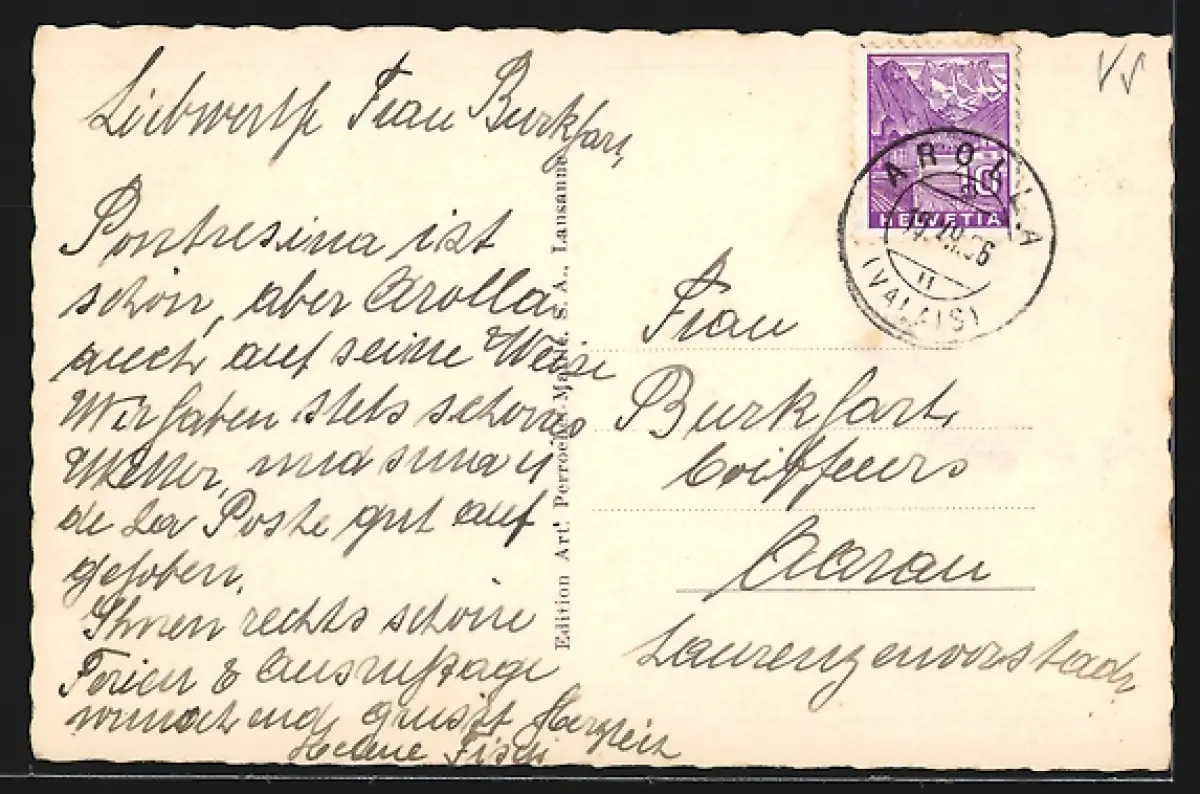 Liebwerthe Frau Burkhart,
Pontresina ist
schön, aber Arolla
auch auf seine Weise
Wir haben stets schönes
Wetter, und sind
de la Poste gut auf
gehoben.
Ihnen rechts schöne
Ferien & Ausruhtage
wünscht und grüsst Herzlich
Helene
Edition Art. Perrochet-Matile, S. A., Lausanne
VS
10
HELVETIA
AROLLA
(VALAIS)
Frau
Burkhart
Coiffeurs
Aarau
Laurenzenvorstadt